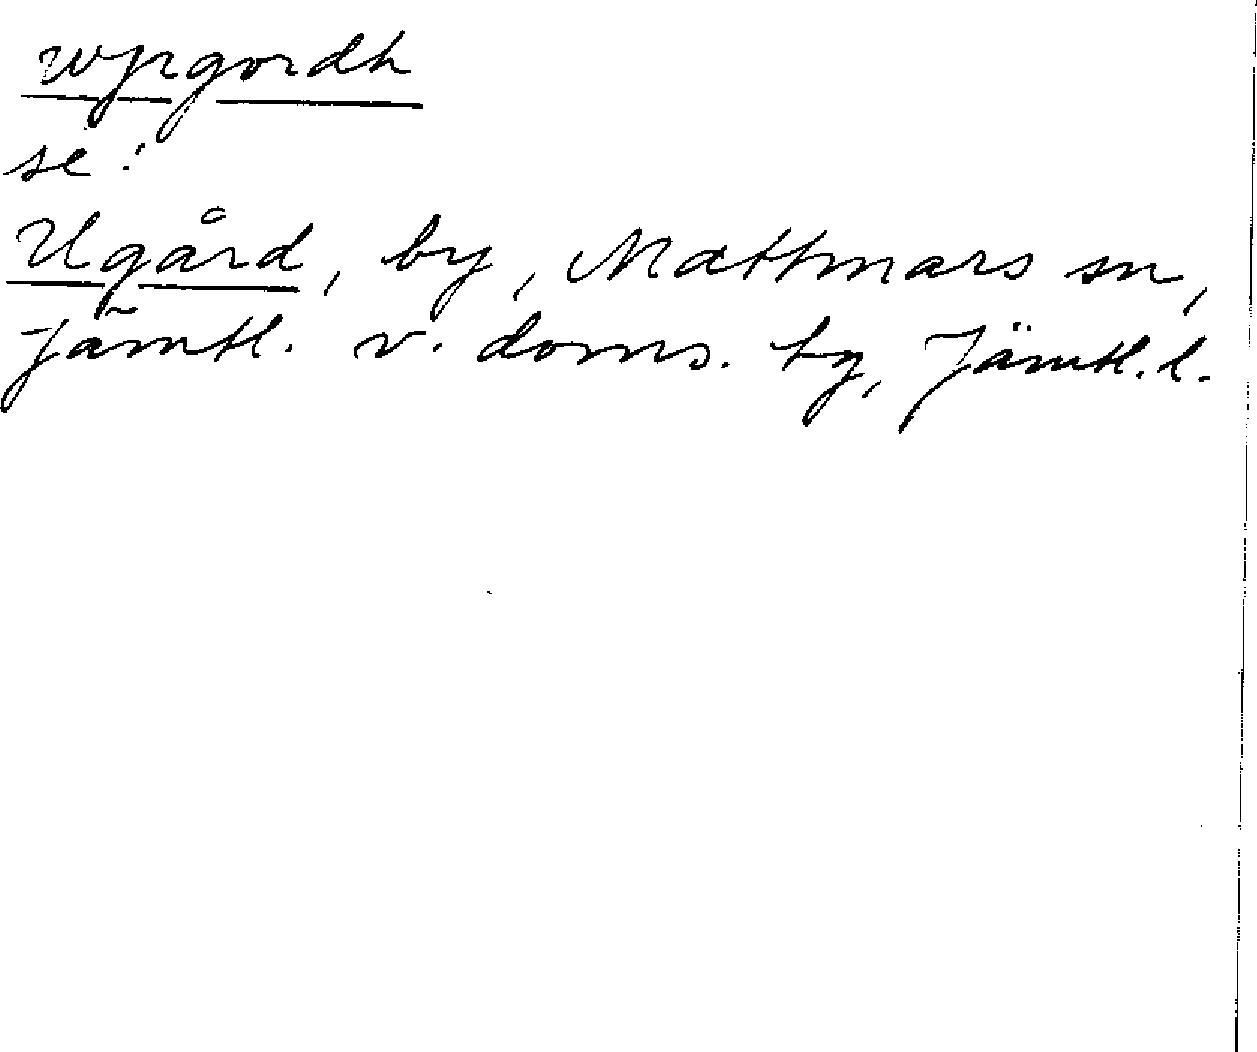 wjrgordh
se:
Ugård, by, Mattmars sn,
Jämtl. v. doms. tg, Jämtl. l.